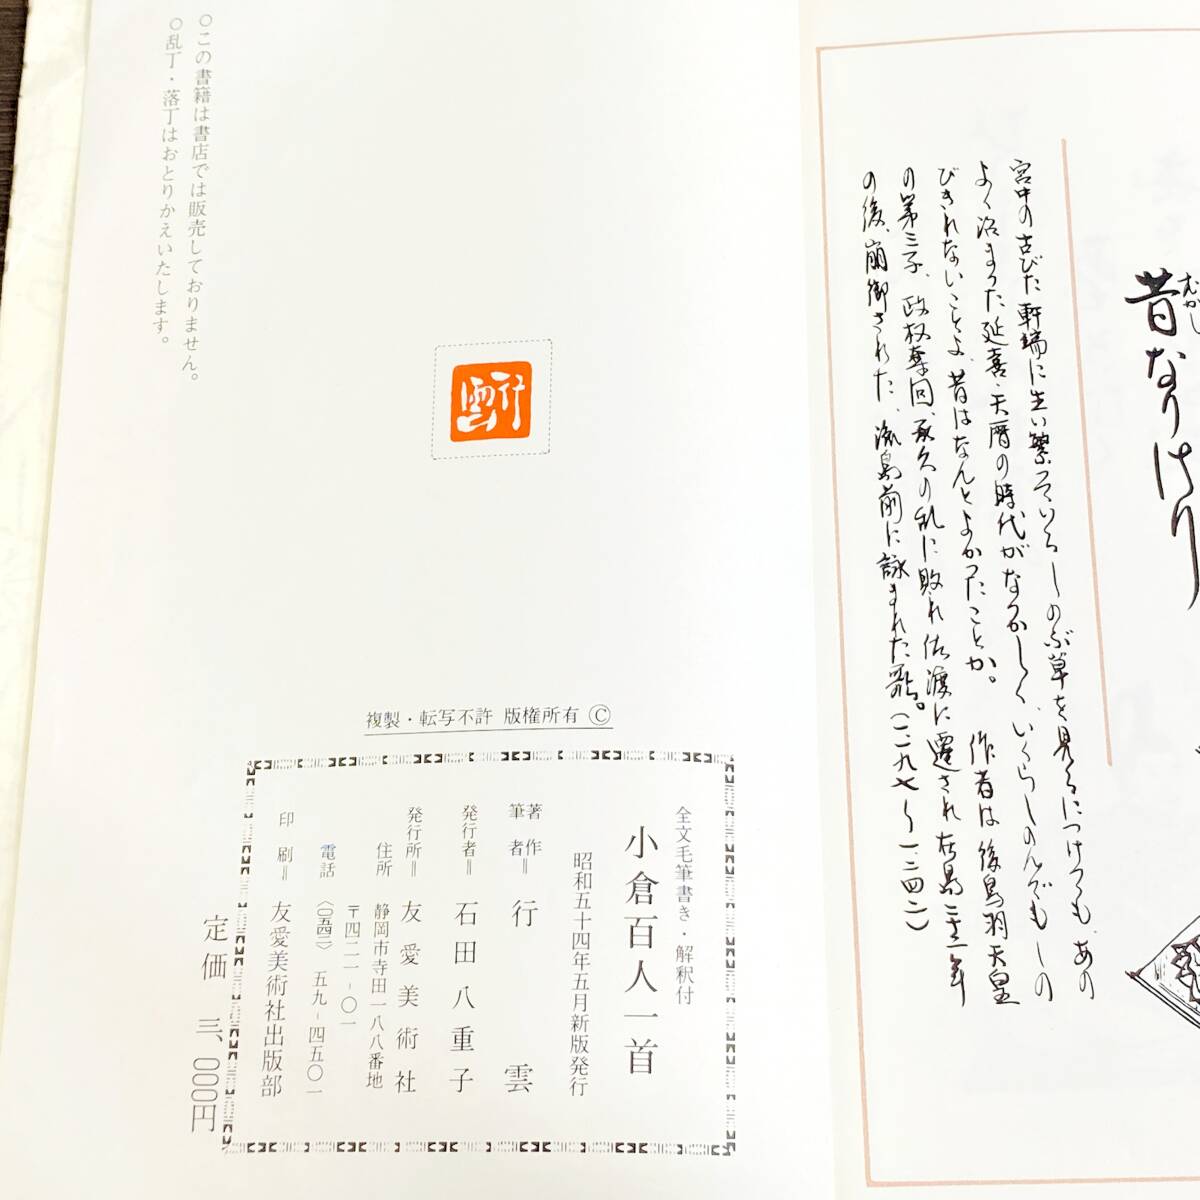 むかし
昔なりけり
宮中の古びた軒端に生い繁っているしのぶ草を見るにつけても、あの
よく治まった延喜・天暦の時代がなつかしく、いくらしのんでもしの
びきれないことよ、昔はなんとよかったことか。 作者は後鳥羽天皇
の第三子、政权奪回、承久の乱に敗れ佐渡に遷され在島二十二年
の後、崩御された、流島前に詠まれた歌。(一一九七〜一二四二)
行雲
複製・転写不許 版権所有 Ⓒ
全文毛筆書き・解釈付
小倉百人一首
昭和五十四年五月新版発行
著作
筆者＝行雲
発行者＝石田八重子
発行所＝友愛美術社
住所 静岡市寺田一八八番地
〒四二一-〇一
電話 〈〇五四二〉五九-四五〇一
印刷＝友愛美術社出版部
定価 三、〇〇〇円
○この書籍は書店では販売しておりません。
○乱丁・落丁はおとりかえいたします。